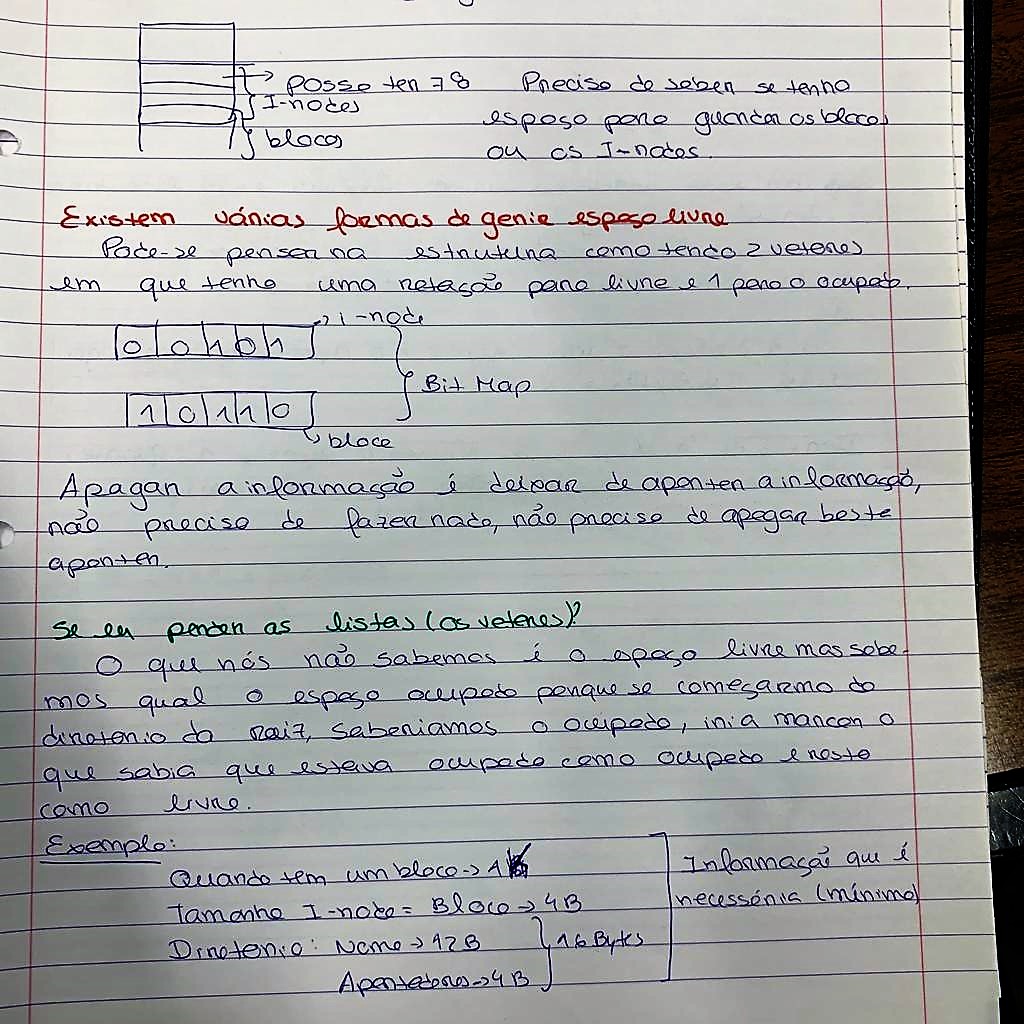 Posso ter 78
I-nodes
blocos
Preciso de saber se tenho
espaço para guardar os blocos
ou os I-nodes.
Existem várias formas de gerir espaço livre
Pode-se pensar na estrutura como tendo 2 vetores
em que tenho uma notação para livre e 1 para o ocupado.
I-node
0 0 1 0 1
Bit Map
1 0 1 1 0
bloco
Apagar a informação é deixar de apontar a informação,
não preciso de fazer nada, não preciso de apagar basta
apontar.
Se eu perder as listas (os vetores)?
O que nós não sabemos é o espaço livre mas sabe-
mos qual o espaço ocupado porque se começarmo do
diretorio da raiz, saberiamos o ocupado, iria marcar o
que sabia que estava ocupado como ocupado e resto
como livre.
Exemplo:
Quando tem um bloco → 1
Tamanho I-node = Bloco → 4B
Diretorio: Nome → 12B
Apontadores → 4B
16 Bytes
Informação que é
necessária (mínimo)